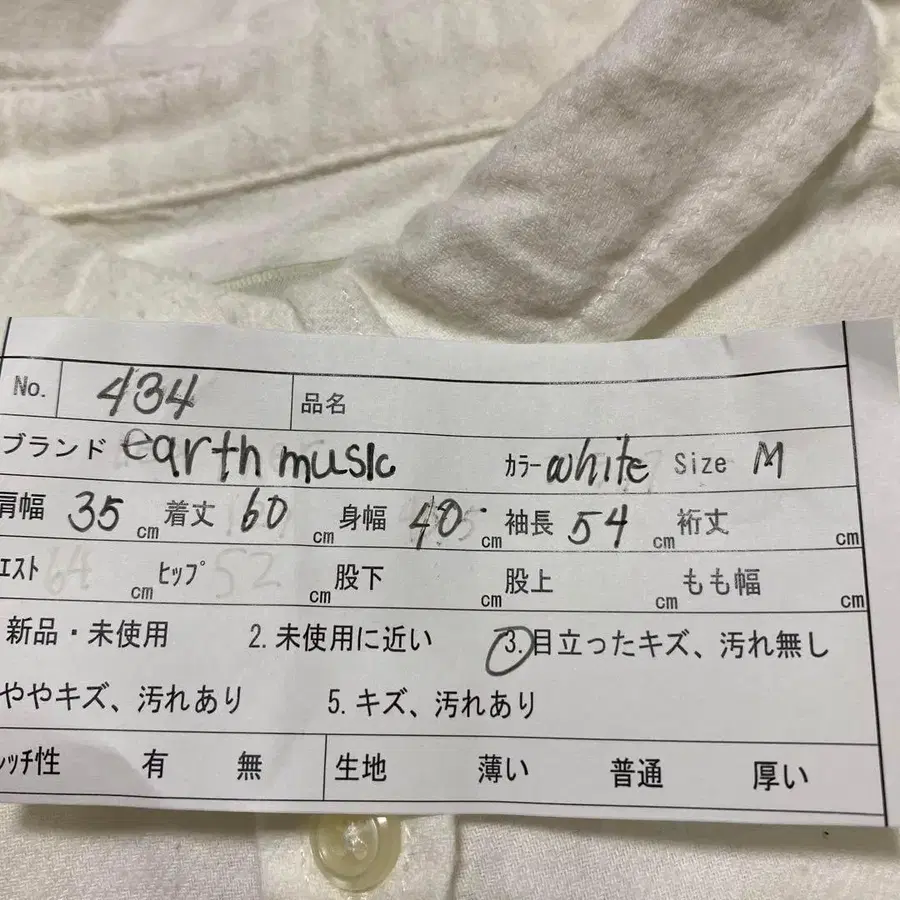 No. 434 品名
ブランド earth music カラー white Size M
肩幅 35 cm 着丈 60 cm 身幅 40 cm 袖長 54 cm 裄丈 cm
エスト 64 cm ヒップ 52 cm 股下 cm 股上 cm もも幅 cm
新品・未使用 2.未使用に近い 3.目立ったキズ、汚れ無し
ややキズ、汚れあり 5.キズ、汚れあり
ッチ性 有 無 生地 薄い 普通 厚い